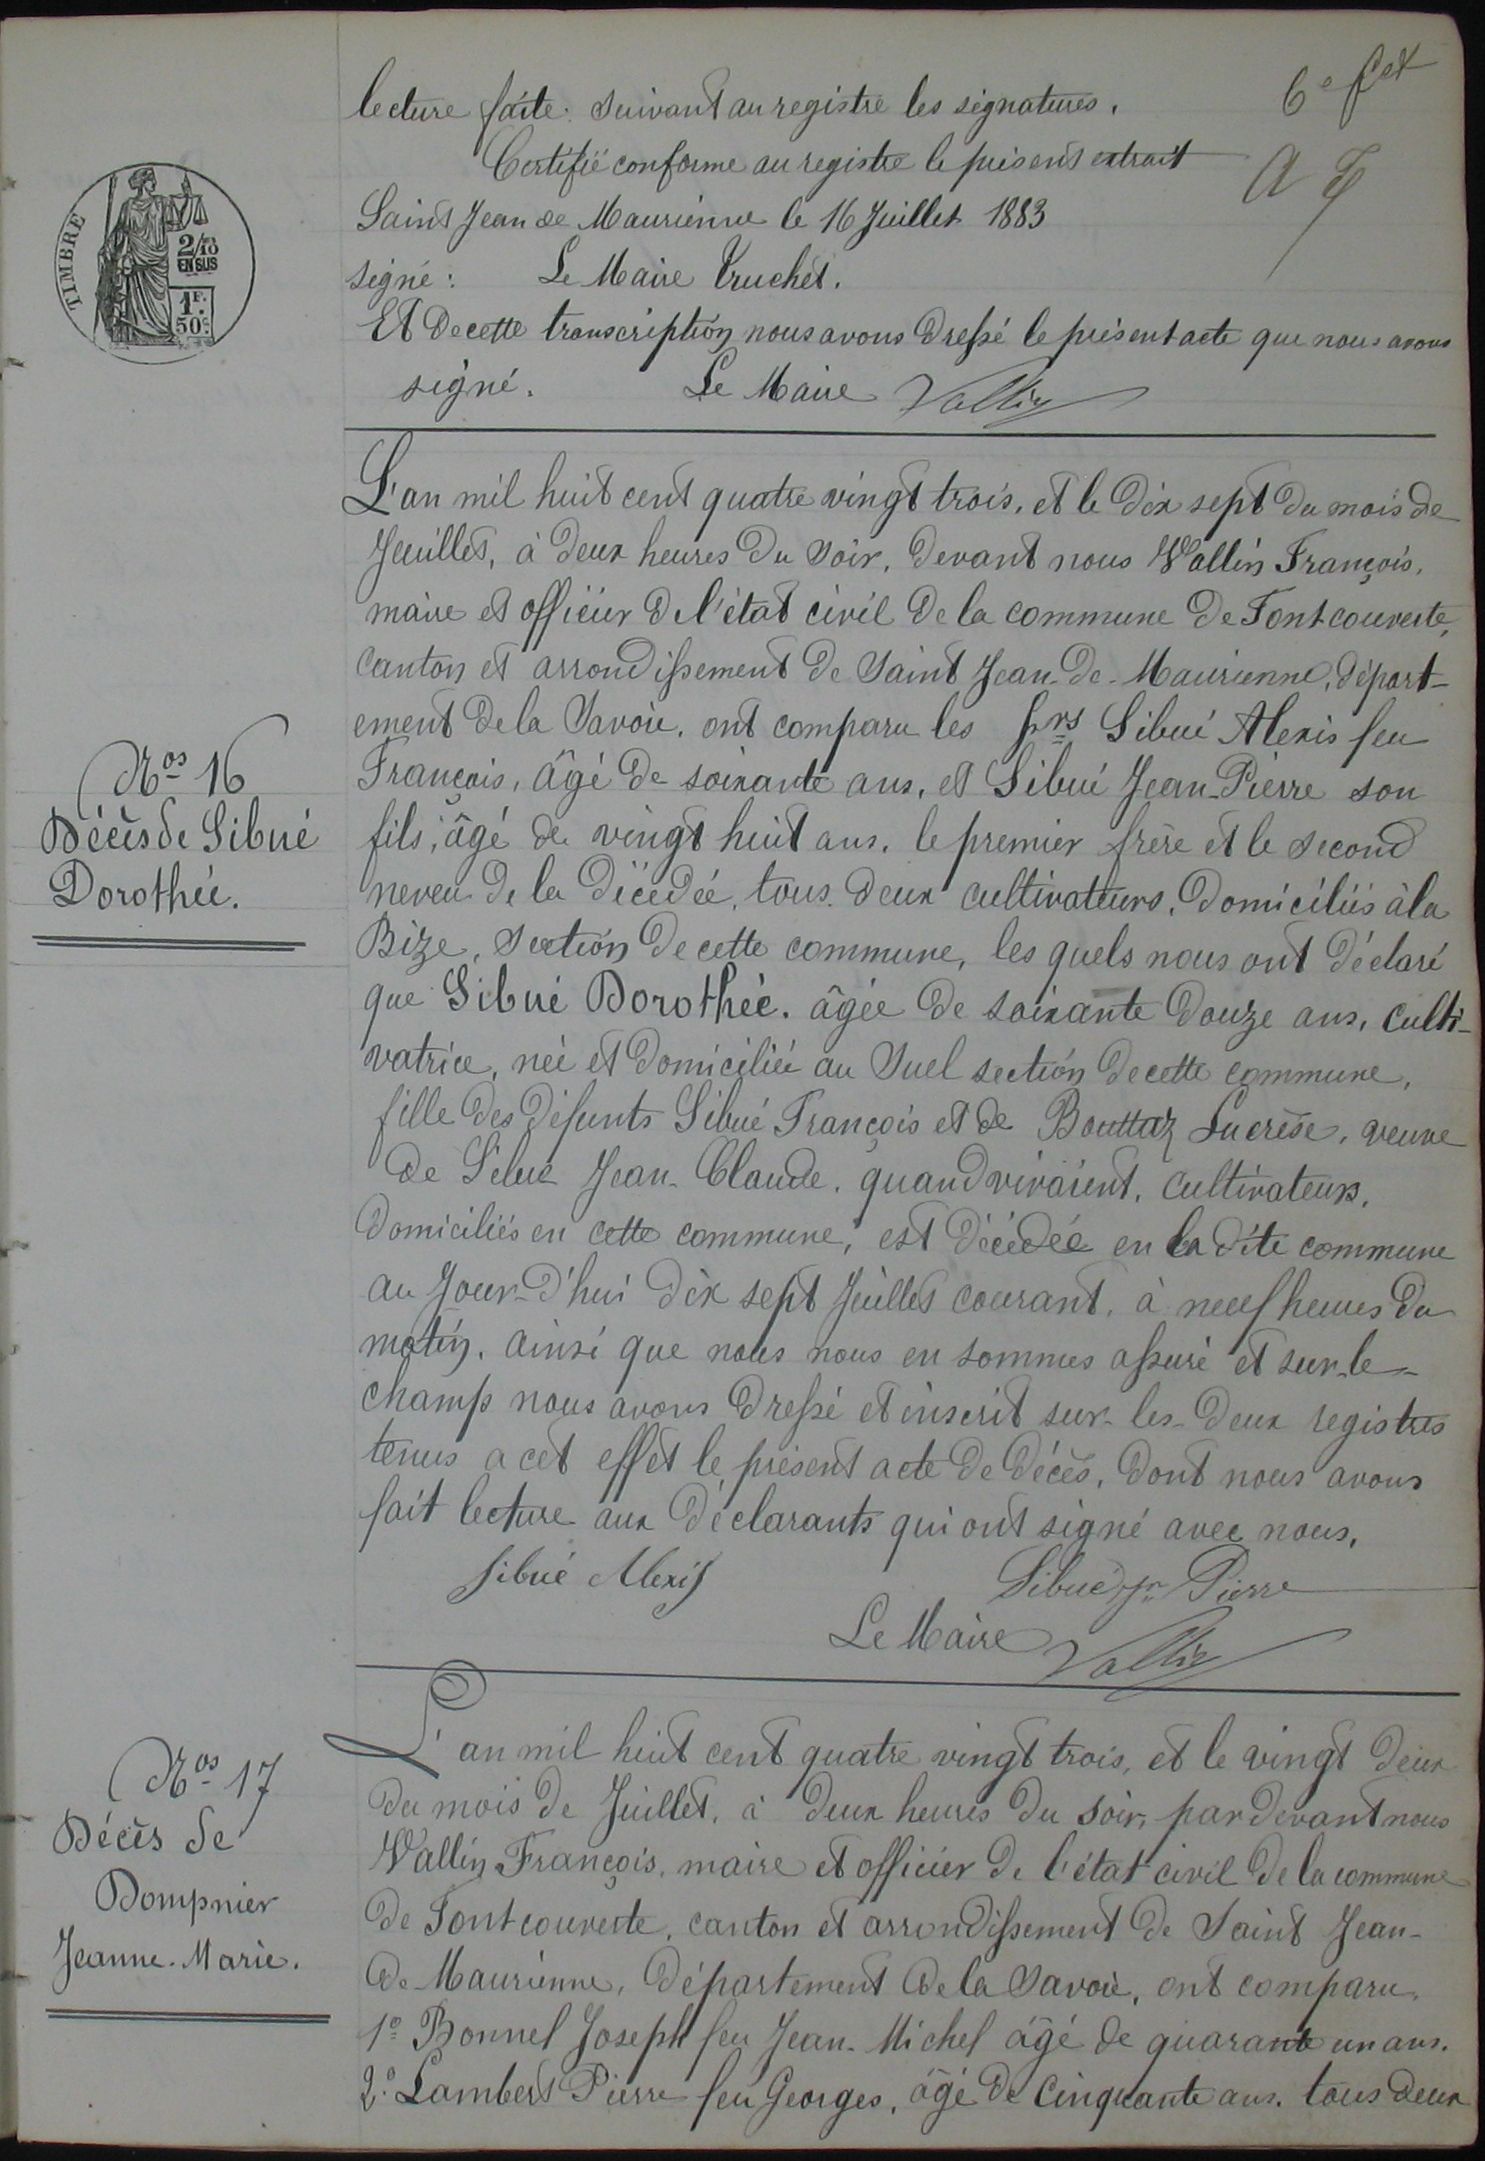 6e fet
lecture faite. Suivant au registre les signatures.
Certifié conforme au registre le présent extrait
Saint Jean de Maurienne le 16 Juillet 1883
signé : Le Maire Truchet.
Et de cette transcription nous avons dressé le présent acte que nous avons
signé. Le Maire Vallin
TIMBRE
2/10
EN SUS
1F.
50c.
Nos 16
Décès de Sibué
Dorothée.
L'an mil huit cent quatre vingt trois, et le dix sept du mois de
Juillet, à deux heures du soir, devant nous Vallin François,
maire et officier de l'état civil de la commune de Fontcouverte,
canton et arrondissement de Saint Jean-de-Maurienne, départ-
ement de la Savoie, ont comparu les srs Sibué Alexis feu
François, âgé de soixante ans, et Sibué Jean-Pierre son
fils, âgé de vingt huit ans, le premier frère et le second
neveu de la décédée, tous deux cultivateurs, domiciliés à la
Bize, section de cette commune, les quels nous ont déclaré
que Sibué Dorothée, âgée de soixante douze ans, culti-
vatrice, née et domiciliée au Suel section de cette commune,
fille des défunts Sibué François et de Bouttaz Lucrèse, veuve
de Sibué Jean-Claude, quand vivaient, cultivateurs,
domiciliés en cette commune, est décédée en la dite commune
au jour-d'hui dix sept Juillet courant, à neuf heures du
matin, ainsi que nous nous en sommes assuré et sur-le-
champ nous avons dressé et inscrit sur-les-deux registres
tenus a cet effet le présent acte de décès, dont nous avons
fait lecture aux déclarants qui ont signé avec nous.
Sibué Alexis Sibué Jn Pierre
Le Maire Vallin
Nos 17
Décès de
Dompnier
Jeanne-Marie.
L'an mil huit cent quatre vingt trois, et le vingt deux
du mois de Juillet, à deux heures du soir, par devant nous
Vallin François, maire et officier de l'état civil de la commune
de Fontcouverte, canton et arrondissement de Saint Jean-
de-Maurienne, département de la Savoie, ont comparu,
1o Bonnel Joseph feu Jean-Michel âgé de quarante un ans.
2o Lambert Pierre feu Georges, âgé de cinquante ans. tous deux